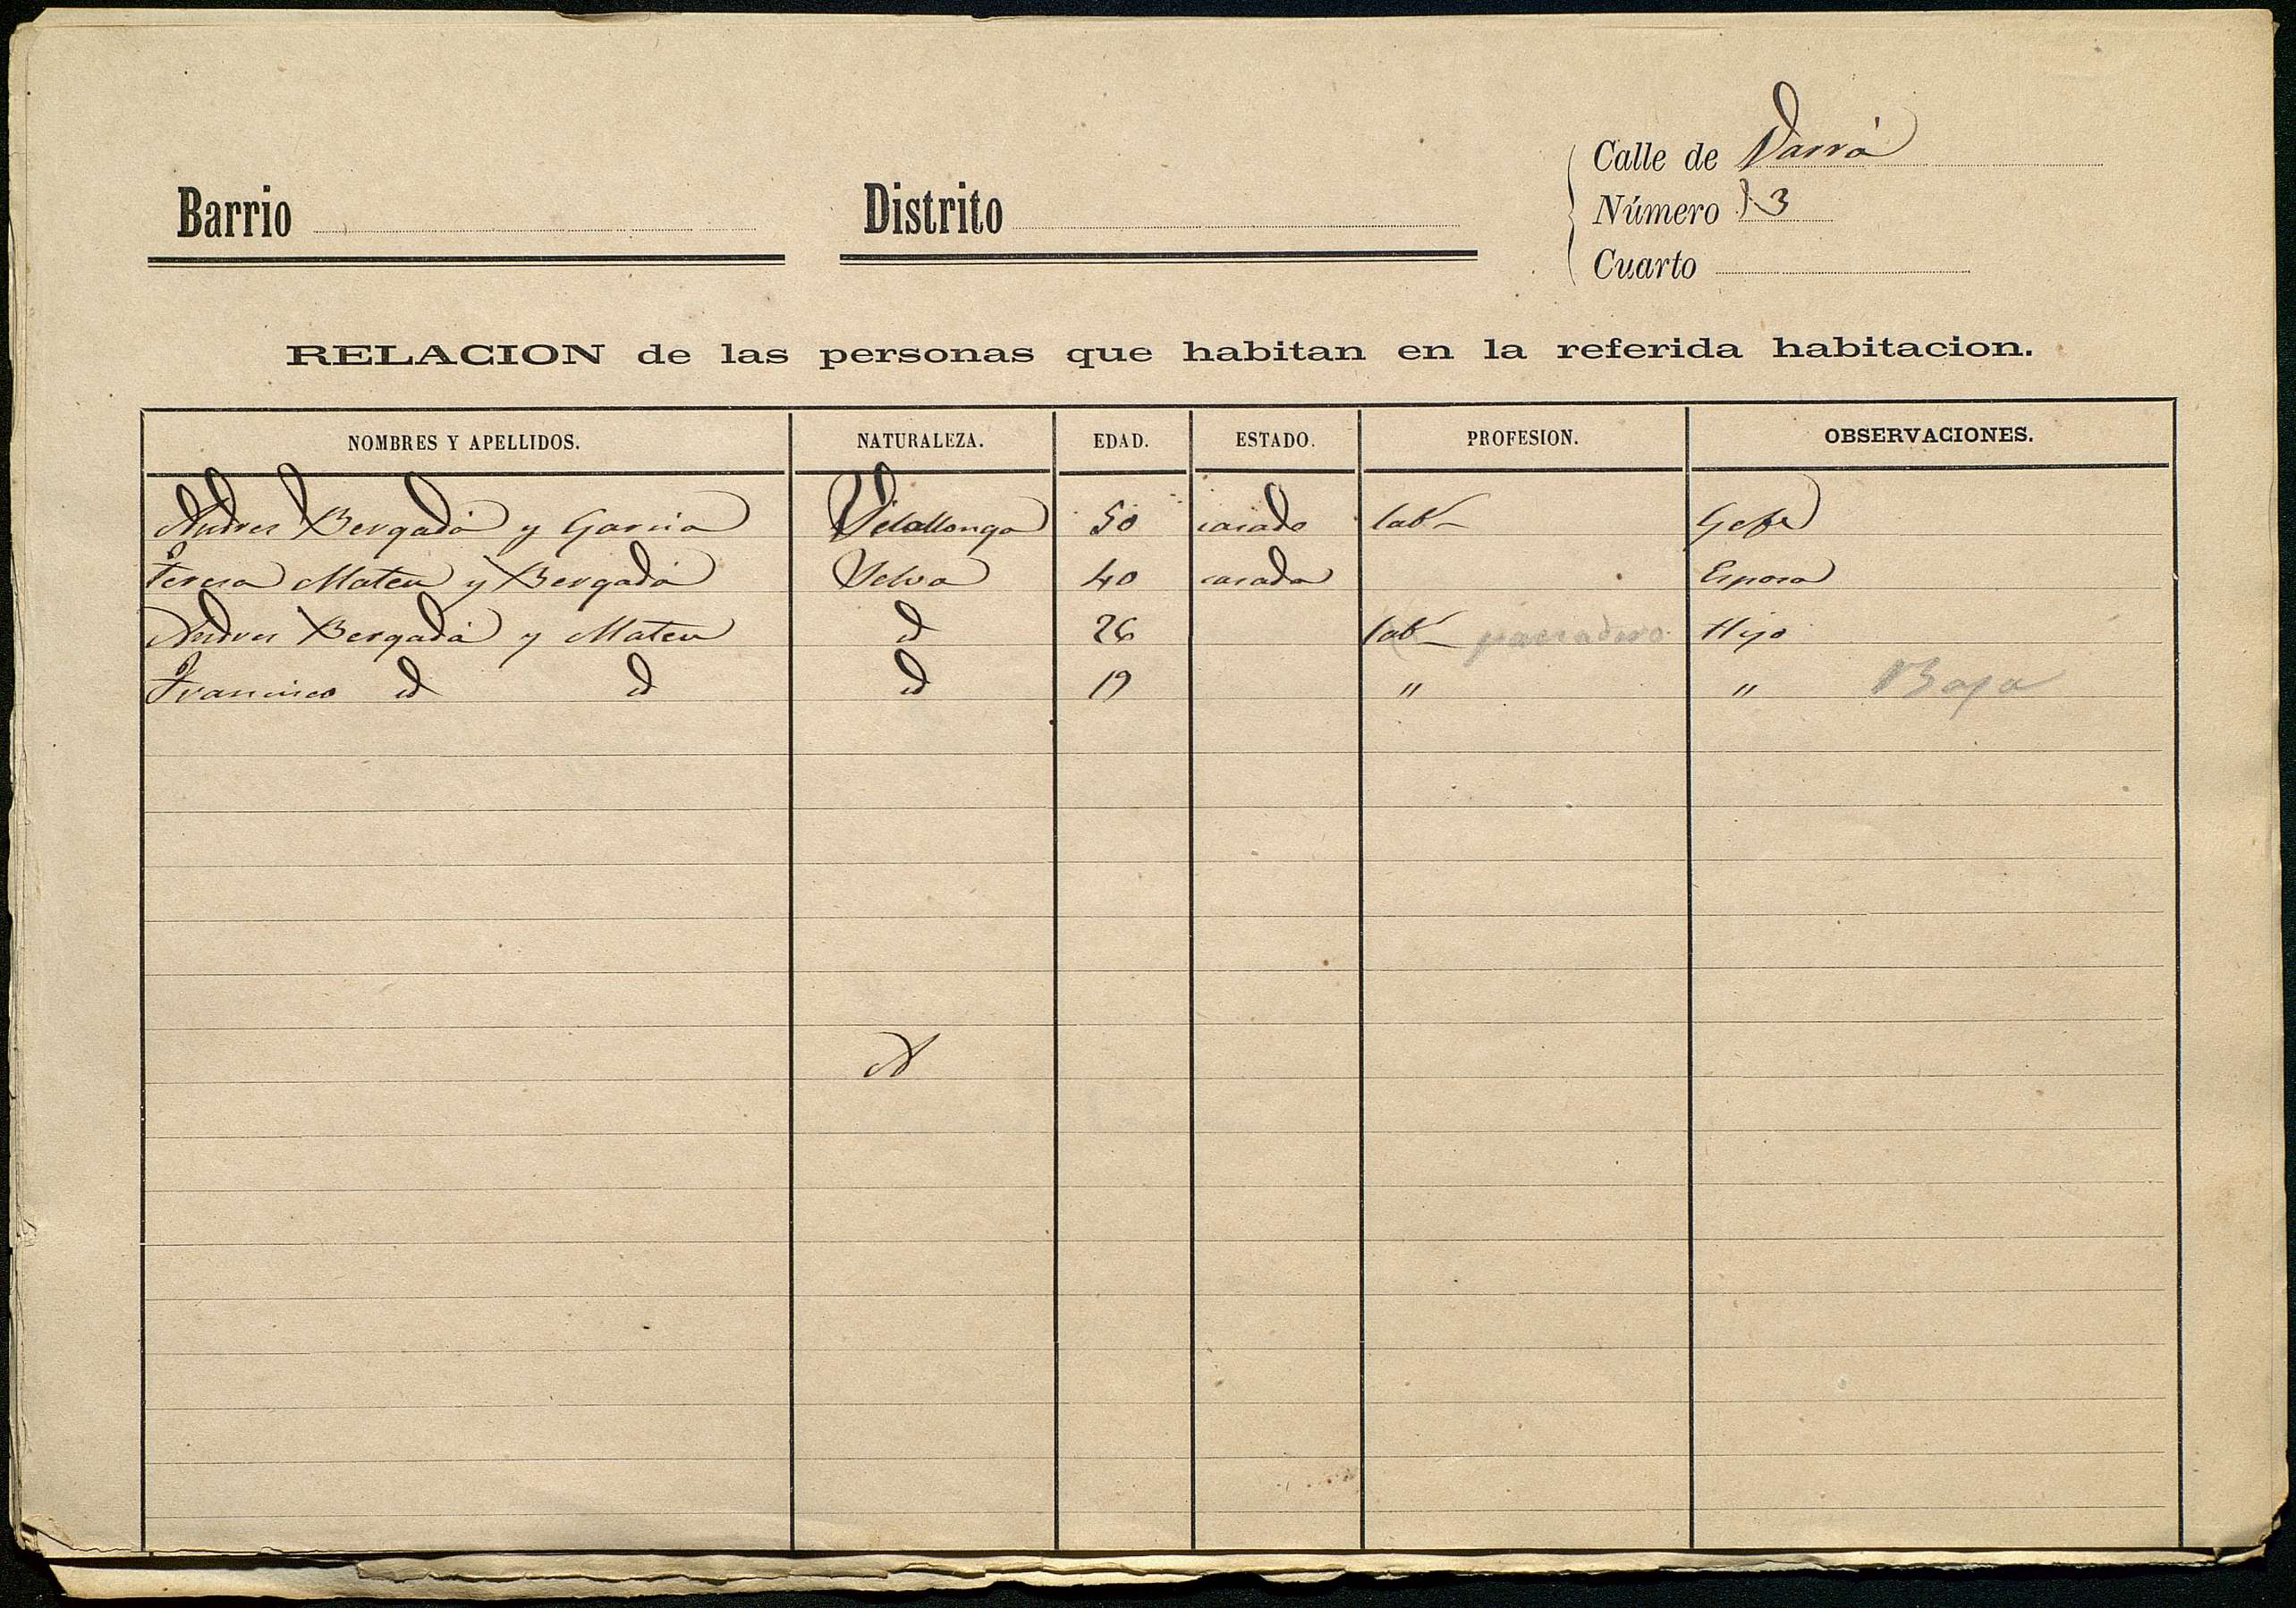 Calle de Darró
Barrio Distrito Número 3
Cuarto
RELACION de las personas que habitan en la referida habitacion.
NOMBRES Y APELLIDOS. NATURALEZA. EDAD. ESTADO. PROFESION. OBSERVACIONES.
Andres Bergadá y Garcia Vilallonga 50 casado labr Gefe
Teresa Mateu y Bergadá Selva 40 casada Esposa
Andres Bergadá y Mateu id 26 labr Hijo
Francisco id id id 19 " " Baja